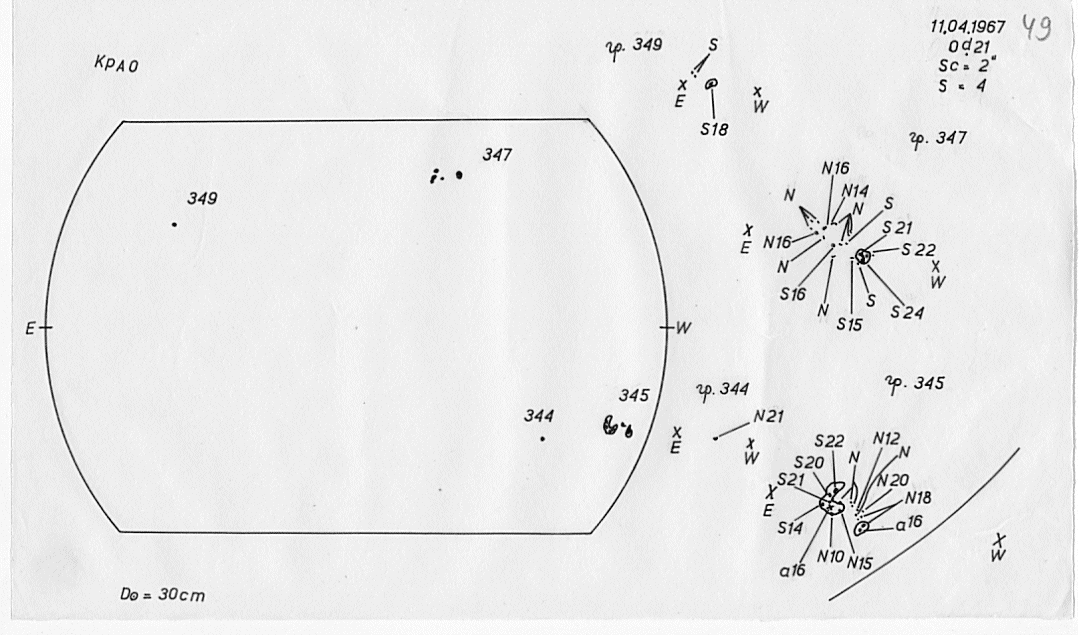 49
11.04.1967
0d.21
Sc = 2"
S = 4
КрАО
E
W
349
347
345
344
D⊙ = 30cm
гр. 349
S
x
E
S18
x
W
гр. 347
N16
N14
N
N
S
S21
S22
x
E
N16
N
x
W
S16
N
S15
S
S24
гр. 344
N21
x
E
x
W
гр. 345
S22
N12
N
N
S20
S21
N20
N18
x
E
S14
a16
N10
N15
a16
x
W